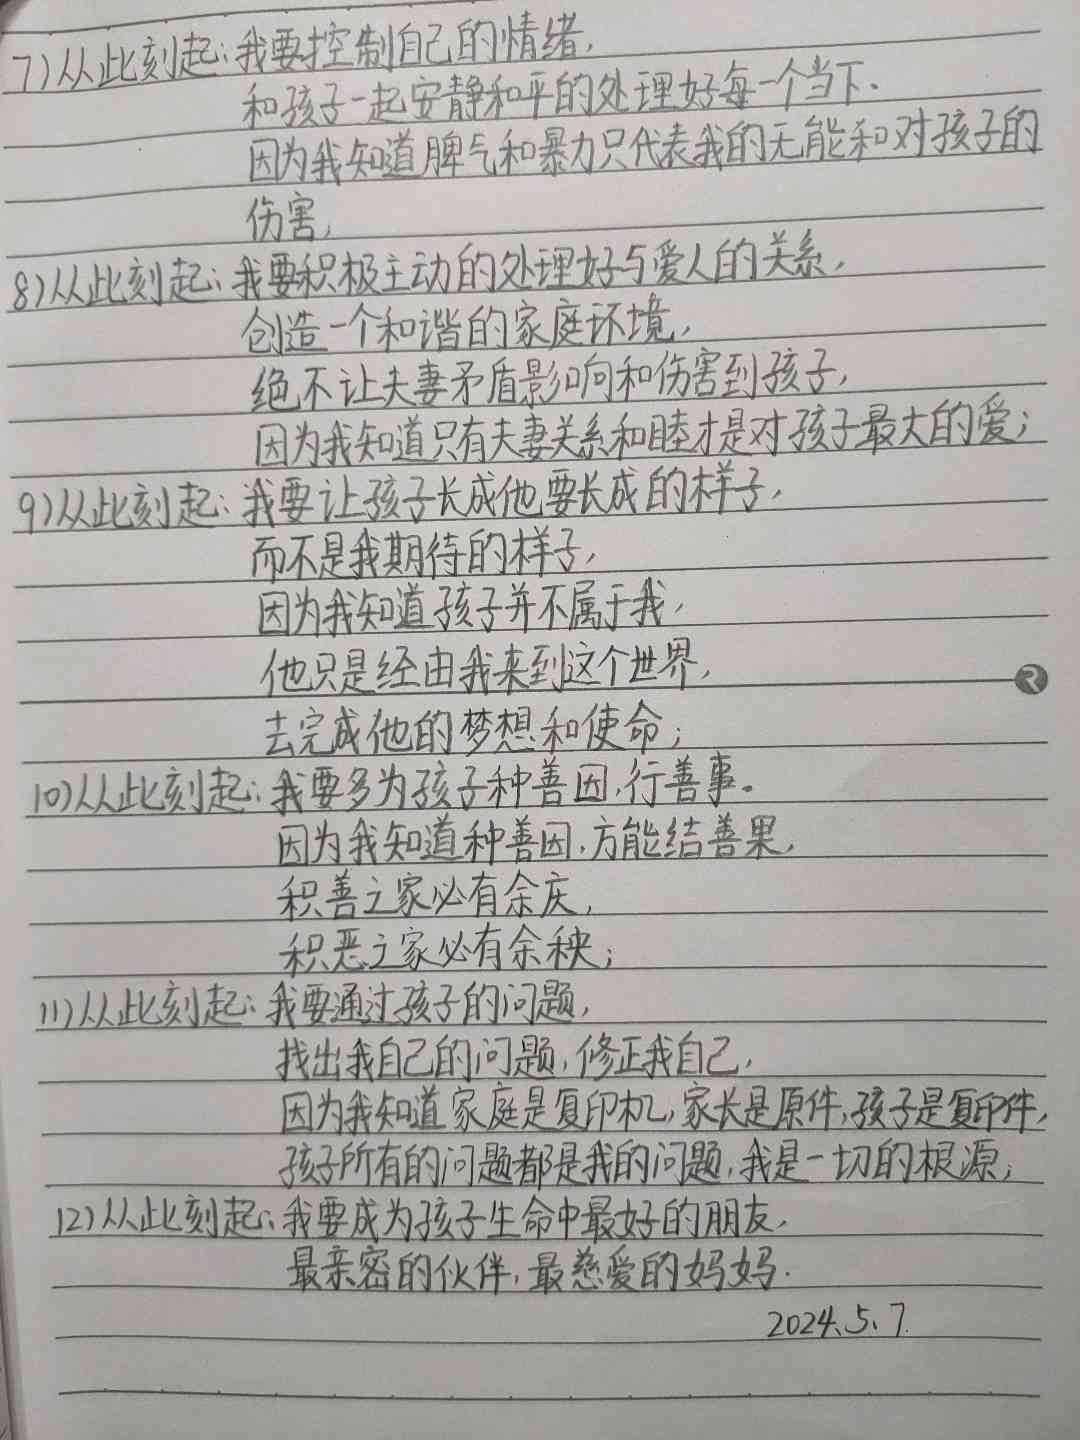 7)从此刻起:我要控制自己的情绪,
和孩子一起安静和平的处理好每一个当下.
因为我知道脾气和暴力只代表我的无能和对孩子的
伤害,
8)从此刻起:我要积极主动的处理好与爱人的关系,
创造一个和谐的家庭环境,
绝不让夫妻矛盾影响和伤害到孩子,
因为我知道只有夫妻关系和睦才是对孩子最大的爱;
9)从此刻起:我要让孩子长成他要长成的样子,
而不是我期待的样子,
因为我知道孩子并不属于我,
他只是经由我来到这个世界,
去完成他的梦想和使命;
10)从此刻起:我要多为孩子种善因,行善事。
因为我知道种善因,方能结善果,
积善之家必有余庆,
积恶之家必有余秧;
11)从此刻起:我要通过孩子的问题,
找出我自己的问题,修正我自己,
因为我知道家庭是复印机,家长是原件,孩子是复印件,
孩子所有的问题都是我的问题,我是一切的根源;
12)从此刻起:我要成为孩子生命中最好的朋友,
最亲密的伙伴,最慈爱的妈妈.
2024.5.7